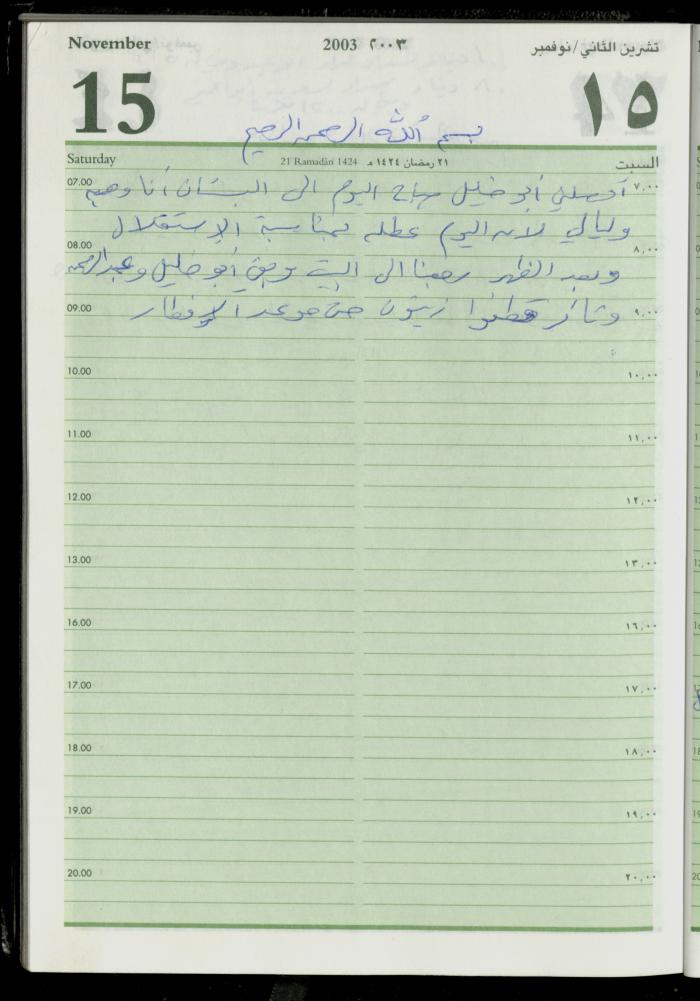 November 2003 ٢٠٠٣ تشرين الثاني/نوفمبر
15 ١٥
بسم الله الرحمن الرحيم
Saturday 21 Ramadân 1424 ٢١ رمضان ١٤٢٤ هـ السبت
07.00 ٧,٠٠
أوصلني أبو خليل صباح اليوم الى البستان أنا وهبه
وليالي لأن اليوم عطله بمناسبة الإستقلال
08.00 ٨,٠٠
وبعد الظهر رجعنا الى البيت وبقي أبو خليل وعبد الرحمن
09.00 ٩,٠٠
وثائر قطفوا زيتون حتى موعد الإفطار
10.00 ١٠,٠٠
11.00 ١١,٠٠
12.00 ١٢,٠٠
13.00 ١٣,٠٠
16.00 ١٦,٠٠
17.00 ١٧,٠٠
18.00 ١٨,٠٠
19.00 ١٩,٠٠
20.00 ٢٠,٠٠